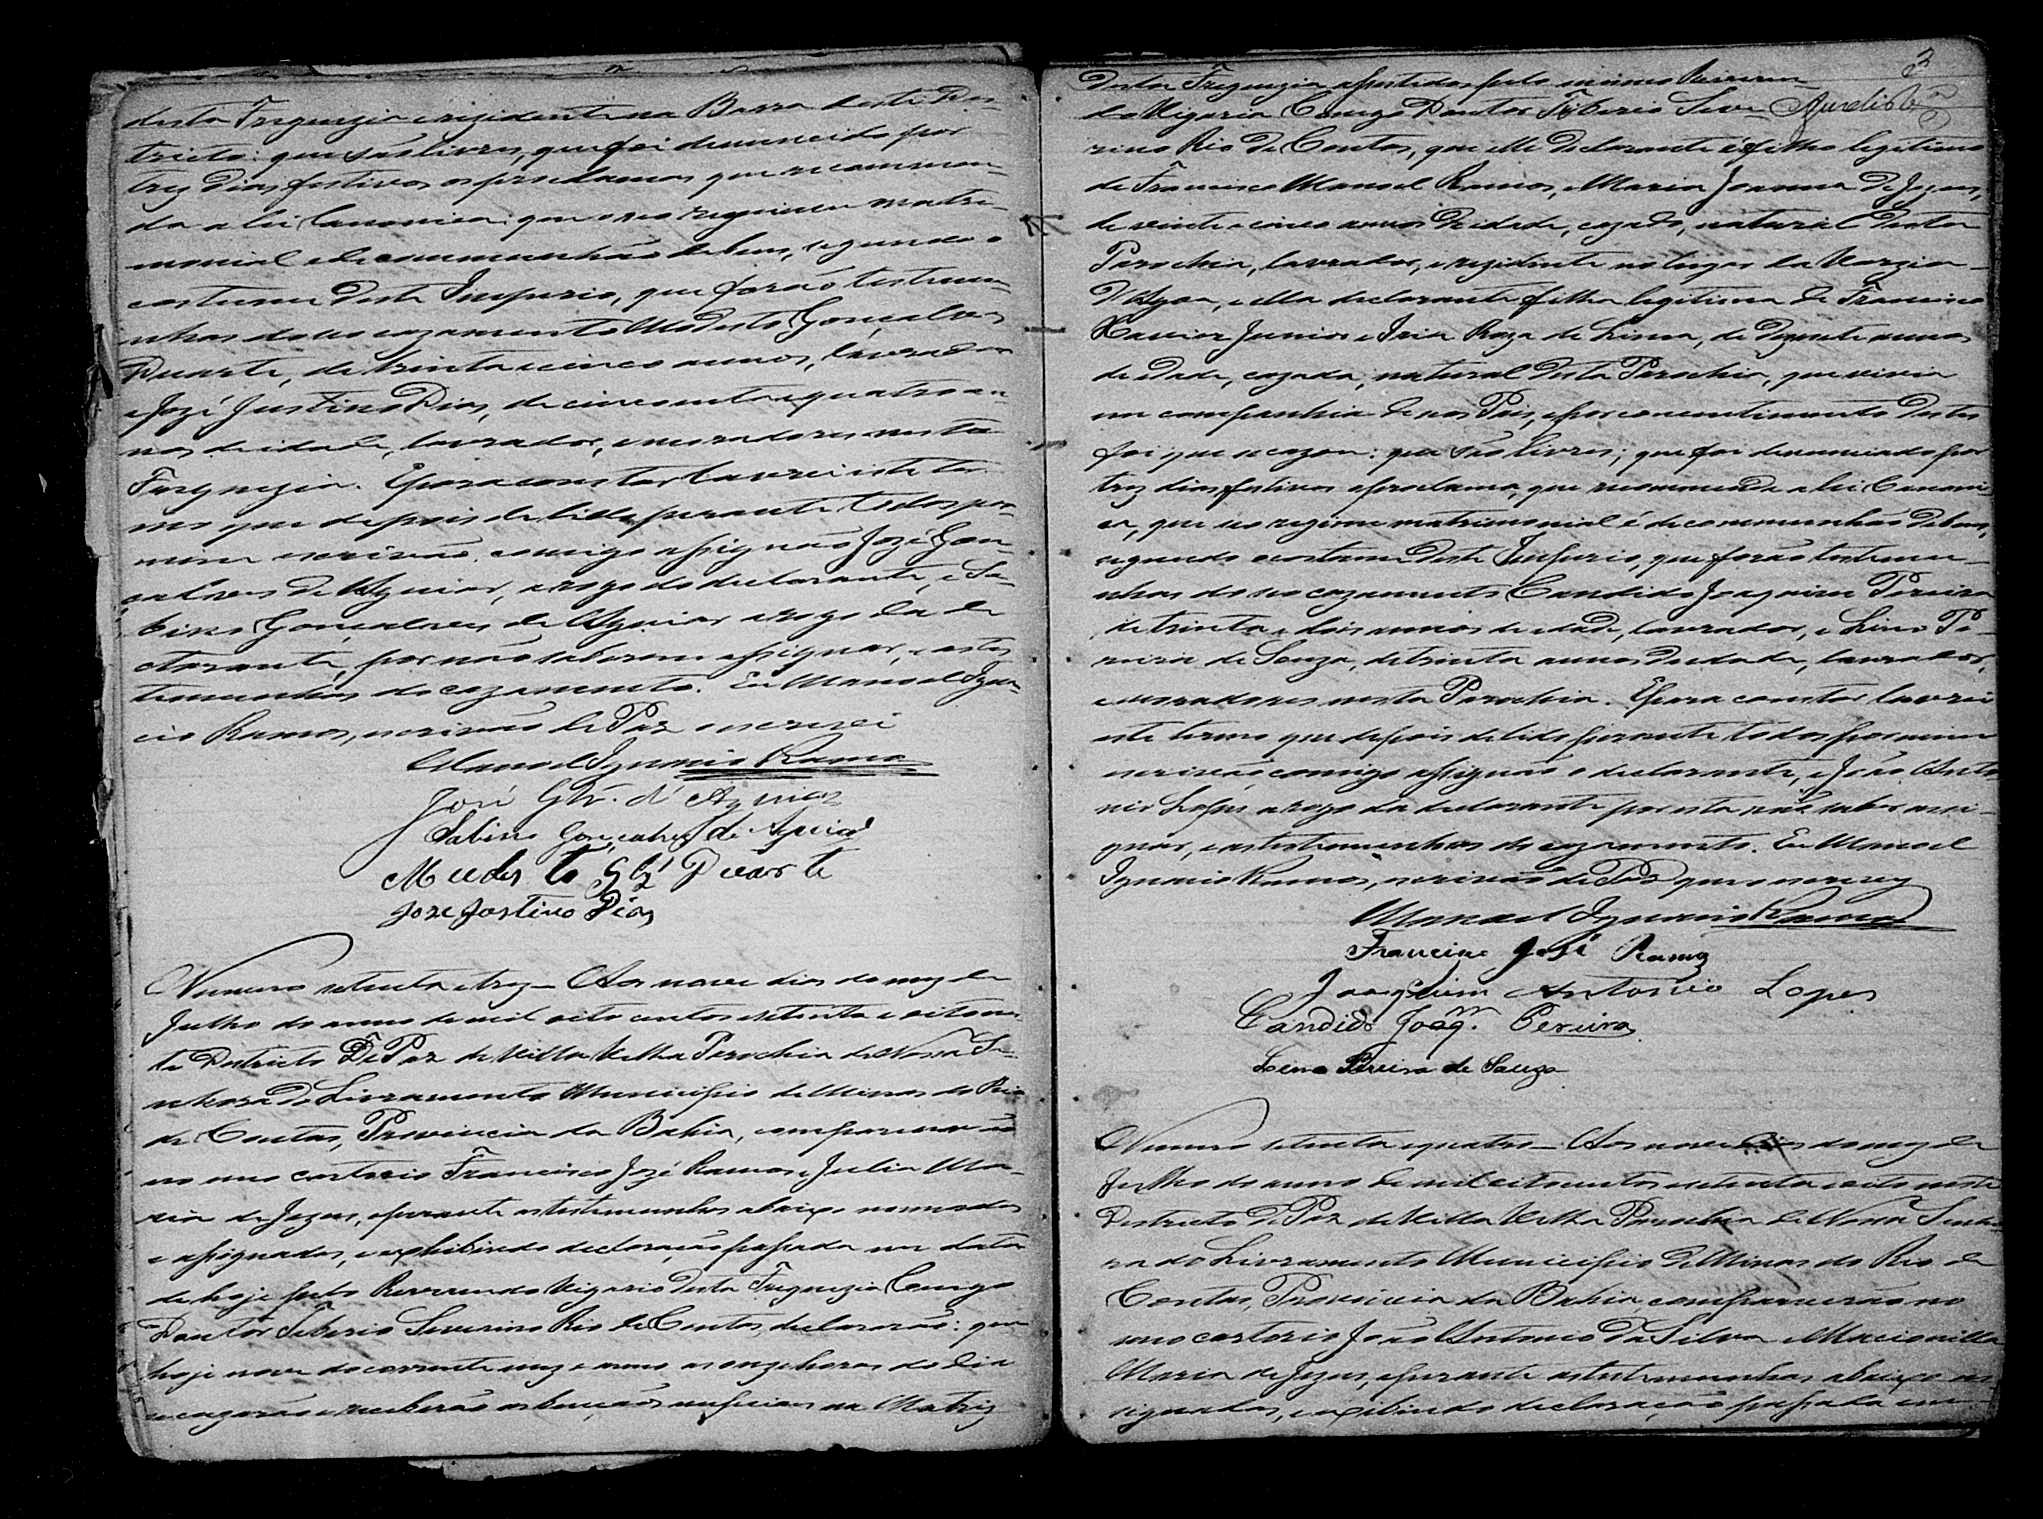 desta Freguezia e rezidente na Barra deste Des-
tricto: que são livres, que foi denunciado por
trez dias festivos os proclamas que recommen-
da a lei Canonica: que o seo regimem matri-
monial é de communhão de bens, segundo o
costume deste Imperio, que forão testemu-
nhas do seo cazamento Modesto Gonçalves
Duarte, de trinta e cinco annos, lavrador
e Jozé Justino Dias, de cincoenta e quatro an-
nos de idade, lavrador, e moradores nesta
Freguezia. E para constar lavrei este ter-
mo que depois de lido perante todos por
mim escrivão, comigo assignão Jozé Gon-
calves de Aguiar, a rogo do declarante, e Sa-
bino Gonçalves de Aguiar a rogo da de
clarante, por não saberem assignar, e as tes
temunhas do cazamento. Eu Manoel Igna-
cio Ramos, escrivão de Paz o escrevi
Manoel Ignacio Ramos
José Glz. d' Aguiar
Sabino Gonçalves de Aguiar
Mudesto Glz Duarte
Joze Jostino Dias
Numero setenta e trez — Aos nove dias do mez de
Julho do anno de mil oito centos e setenta e oito nes-
te Destricto de Paz de Villa Velha Parochia de Nossa Se-
nhora do Livramento Municipio de Minas do Rio
de Contas, Provincia da Bahia, comparecerão
no meo cartorio Francisco Jozé Ramos e Julia Ma-
ria de Jezus, e perante as testemunhas abaixo nomeadas
e assignadas, e exhibindo declaração passada em data
de hoje pelo Reverendo Vigario desta Freguezia Conego
Doutor Tiberio Severino Rio de Contas, declararão: que
hoje nove do corrente mez e anno as onze horas do dia
se cazarão e receberão as bençãos nupciaes na Matriz
3
desta Freguezia assistidos pelo mesmo Reveren-
do Vigario Conego Doutor Tiberio Seve-
rino Rio de Contas, que elle declarante é filho legitimo
de Francisco Manoel Ramos, e Maria Joanna de Jezus,
de vinte e cinco annos de idade, cazado, natural desta
Parochia, lavrador, e rezidente no lugar da Varzia
d'Agoa, e ella declarante filha legitima de Francisco
Xavier Junior e Iria Roza de Lima, de dezesete annos
de idade, cazada, natural desta Parochia, que vivia
em companhia de seos Pais, e por consentimento destes
foi que se cazou: que são livres; que foi denunciado por
trez dias festivos o proclama, que recommenda a lei Canoni-
ca, que seo regime matrimonial é de communhão de bens,
segundo o costume deste Imperio, que forão testemu-
nhas do seo cazamento Candido Joaquim Pereira
de trinta e dois annos de idade, lavrador, e Lino Pe-
reira de Souza, de trinta annos de idade, lavrador,
e moradores nesta Parochia. E para constar lavrei
este termo que depois de lido perante todos por mim
escrivão, comigo assignão o declarante, e João Anto
nio Lopes a rogo da declarante por esta não saber assi-
gnar, e as testemunhas do cazamento. Eu Manoel
Ignacio Ramos, escrivão de Paz que o escrevy
Manoel Ignacio Ramos
Francisco José Ramos
Joaquim Antonio Lopes
Candido Joaqm. Pereira
Lino Pereira de Souza
Numero setenta e quatro — Aos nove dias do mez de
Julho do anno de mil oitocentos e setenta e oito neste
Destricto de Paz de Villa Velha Parochia de Nossa Senho-
ra do Livramento Municipio de Minas do Rio de
Contas, Provincia da Bahia, comparecerão no
meo cartorio João Antonio da Silva e
Maria de Jezus, e perante as testemunhas abaixo as
signadas, e exibindo declaração passada em